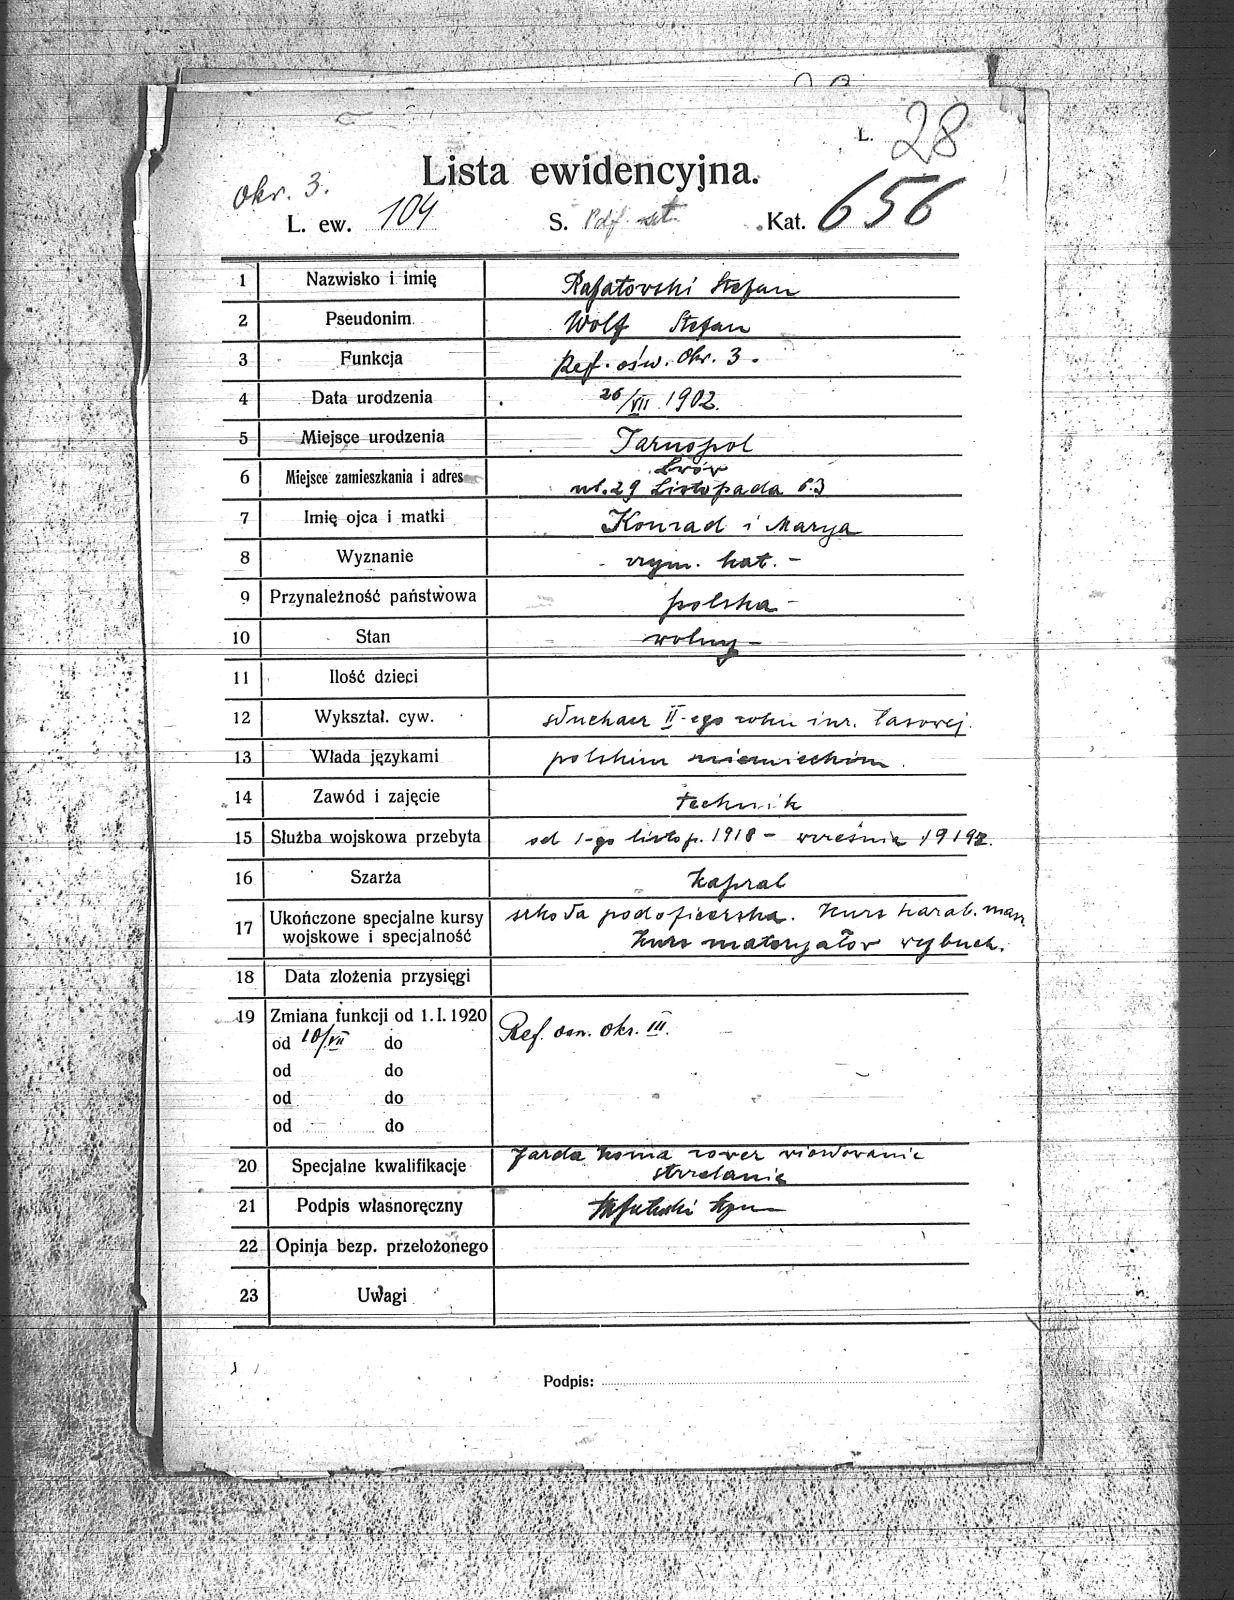 L. 28
Lista ewidencyjna.
Okr. 3.
L. ew. 104 S. Pdf. Kat. 656
1 Nazwisko i imię Rafatovski Stefan
2 Pseudonim Wolf Stefan
3 Funkcja Ref. ośw. Okr. 3.
4 Data urodzenia 26/VII 1902.
5 Miejsce urodzenia Tarnopol
6 Miejsce zamieszkania i adres Lwów
ul. 29 Listopada l. 3
7 Imię ojca i matki Konrad i Marya
8 Wyznanie rzym. kat. -
9 Przynależność państwowa polska -
10 Stan wolny -
11 Ilość dzieci
12 Wykształ. cyw. słuchacz II-ego roku inr. lasowej.
13 Włada językami polskim niemieckim.
14 Zawód i zajęcie technik
15 Służba wojskowa przebyta od 1-go listop. 1918 - września 1919
16 Szarża Kapral
17 Ukończone specjalne kursy
wojskowe i specjalność
szkoła podoficerska. Kurs karab. masz.
Kurs materyałów wybuch.
18 Data złożenia przysięgi
19 Zmiana funkcji od 1. I. 1920
od 10/VII do Ref. osw. okr. III.
od do
od do
od do
20 Specjalne kwalifikacje Jazda konna rower wiosłowanie
strzelanie
21 Podpis własnoręczny
22 Opinja bezp. przełożonego
23 Uwagi
Podpis: